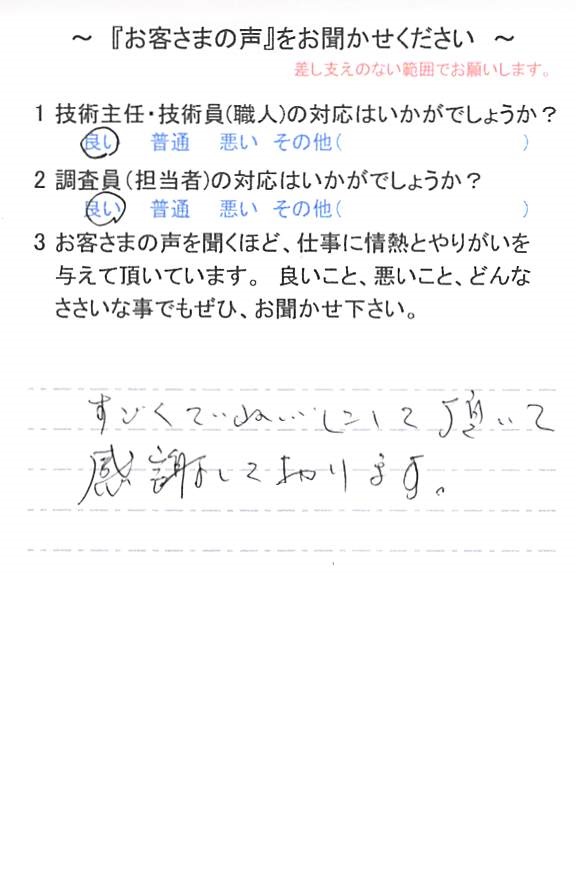 ～ 『お客さまの声』をお聞かせください ～
差し支えのない範囲でお願いします。
1 技術主任・技術員(職人)の対応はいかがでしょうか？
良い 普通 悪い その他( )
2 調査員(担当者)の対応はいかがでしょうか？
良い 普通 悪い その他( )
3 お客さまの声を聞くほど、仕事に情熱とやりがいを
与えて頂いています。 良いこと、悪いこと、どんな
ささいな事でもぜひ、お聞かせ下さい。
すごくていねいにして頂いて
感謝して おります。